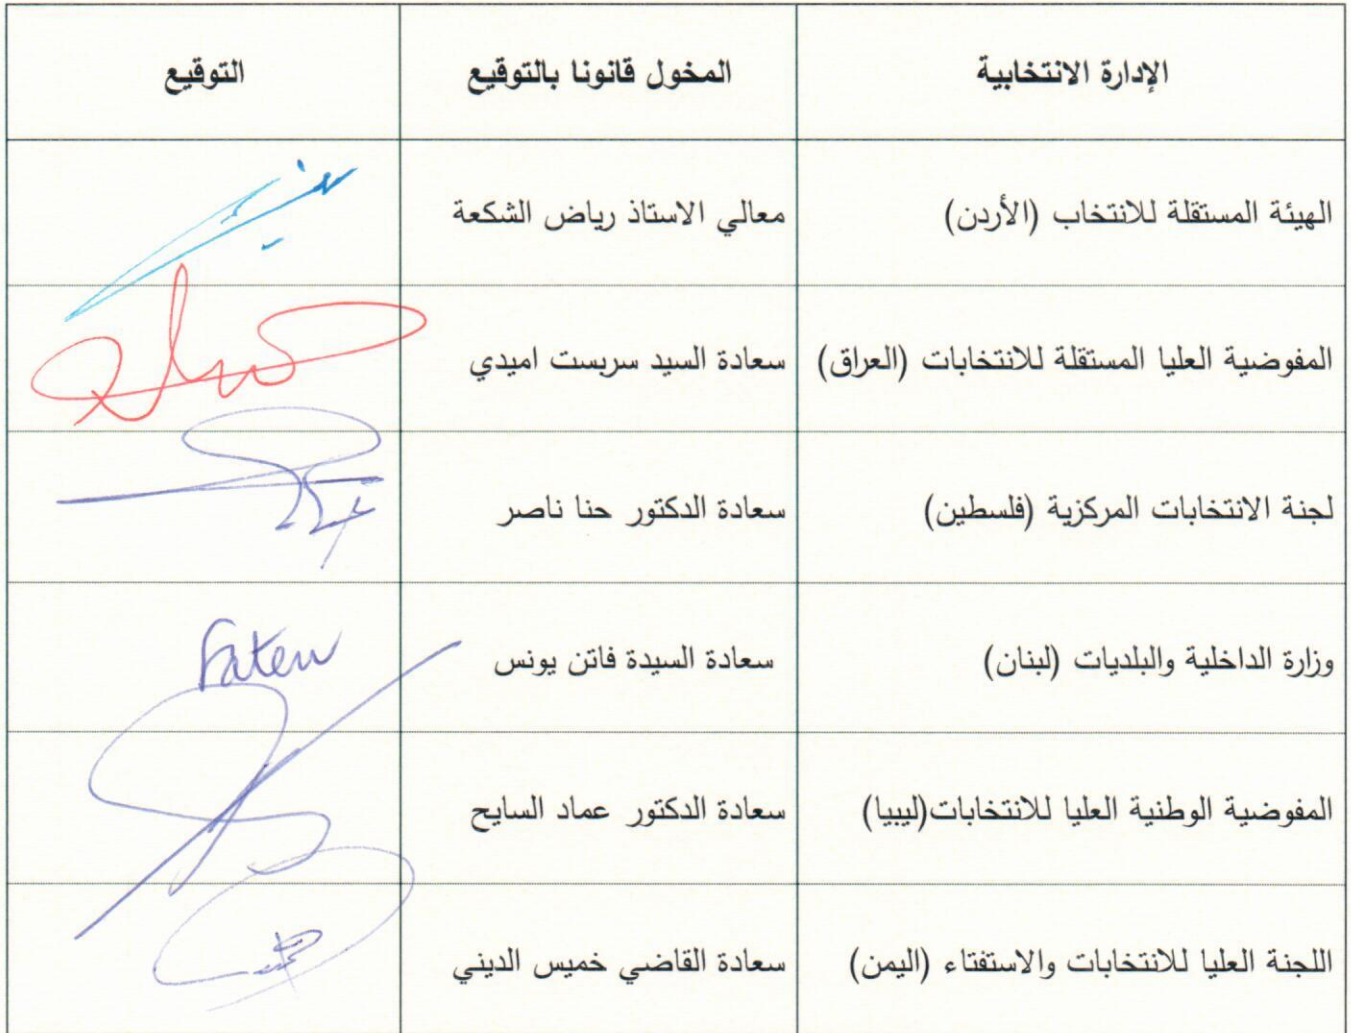 الإدارة الانتخابية المخول قانونا بالتوقيع التوقيع
الهيئة المستقلة للانتخاب (الأردن) معالي الاستاذ رياض الشكعة
المفوضية العليا المستقلة للانتخابات (العراق) سعادة السيد سربست اميدي
لجنة الانتخابات المركزية (فلسطين) سعادة الدكتور حنا ناصر
وزارة الداخلية والبلديات (لبنان) سعادة السيدة فاتن يونس Faten
المفوضية الوطنية العليا للانتخابات(ليبيا) سعادة الدكتور عماد السايح
اللجنة العليا للانتخابات والاستفتاء (اليمن) سعادة القاضي خميس الديني